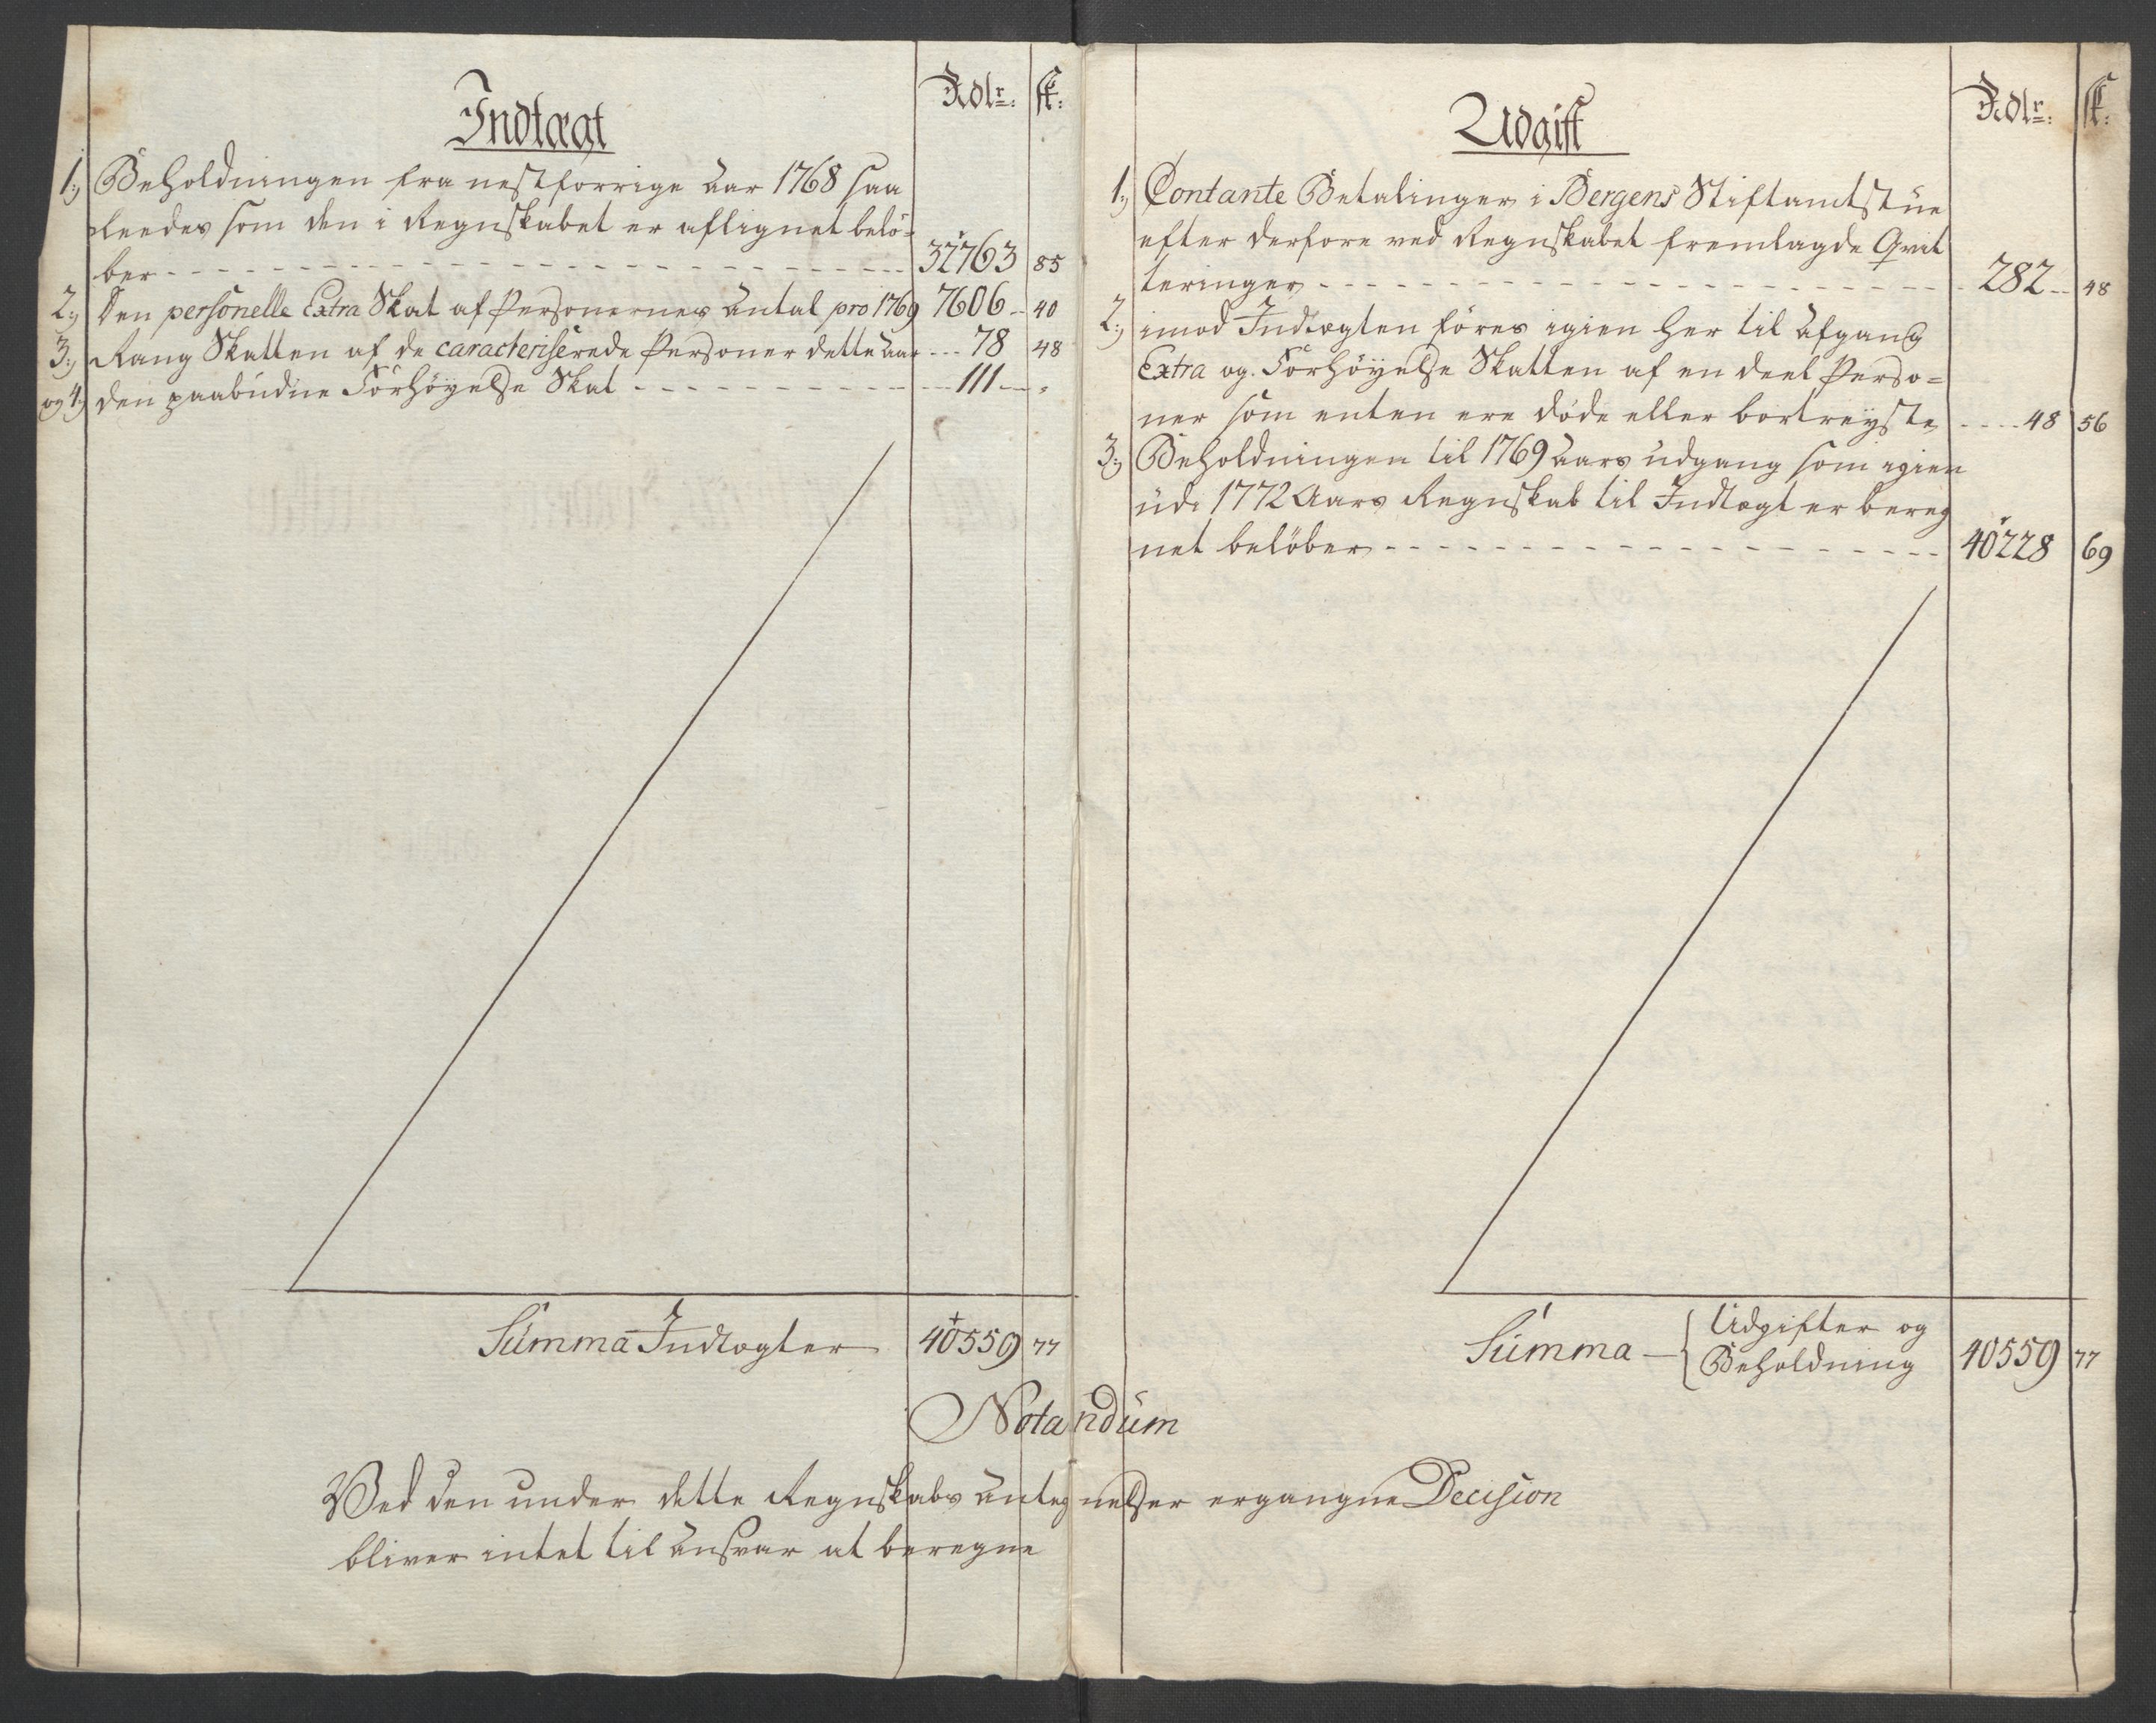 Indtægt
Rdlr: sk:
1:) Beholdningen fra nestforrige Aar 1768 saa
leedes som den i Regnskabet er aflignet belö-
ber 32763 85
2:) Den personelle Extra Skat af Personernes Antal pro 1769 7606 40
3:) Rang Skatten af de caracteriserede Personer dette Aar 78 48
og 4:) den paabudne Forhöyelse Skat 111 "
Summa Indtægter 40559 77
Udgift
Rdlr: sk:
1:) Contante Betalinger i Bergens Stiftamtstue
efter derfore ved Regnskabet fremlagde Qvit
teringer 282 48
2:) imod Indtægten föres igien her til Afgang
Extra og Forhöyelse Skatten af en deel Perso=
ner som enten ere döde eller bortreyste 48 56
3:) Beholdningen til 1769 Aars udgang som igien
udi 1772 Aars Regnskab til Indtægt er bereg
net belöber 40228 69
Summa Udgifter og
Beholdning 40559 77
Notandum
Ved den under dette Regnskabs Antegnelser ergangne Decision
bliver intet til Ansvar at beregne